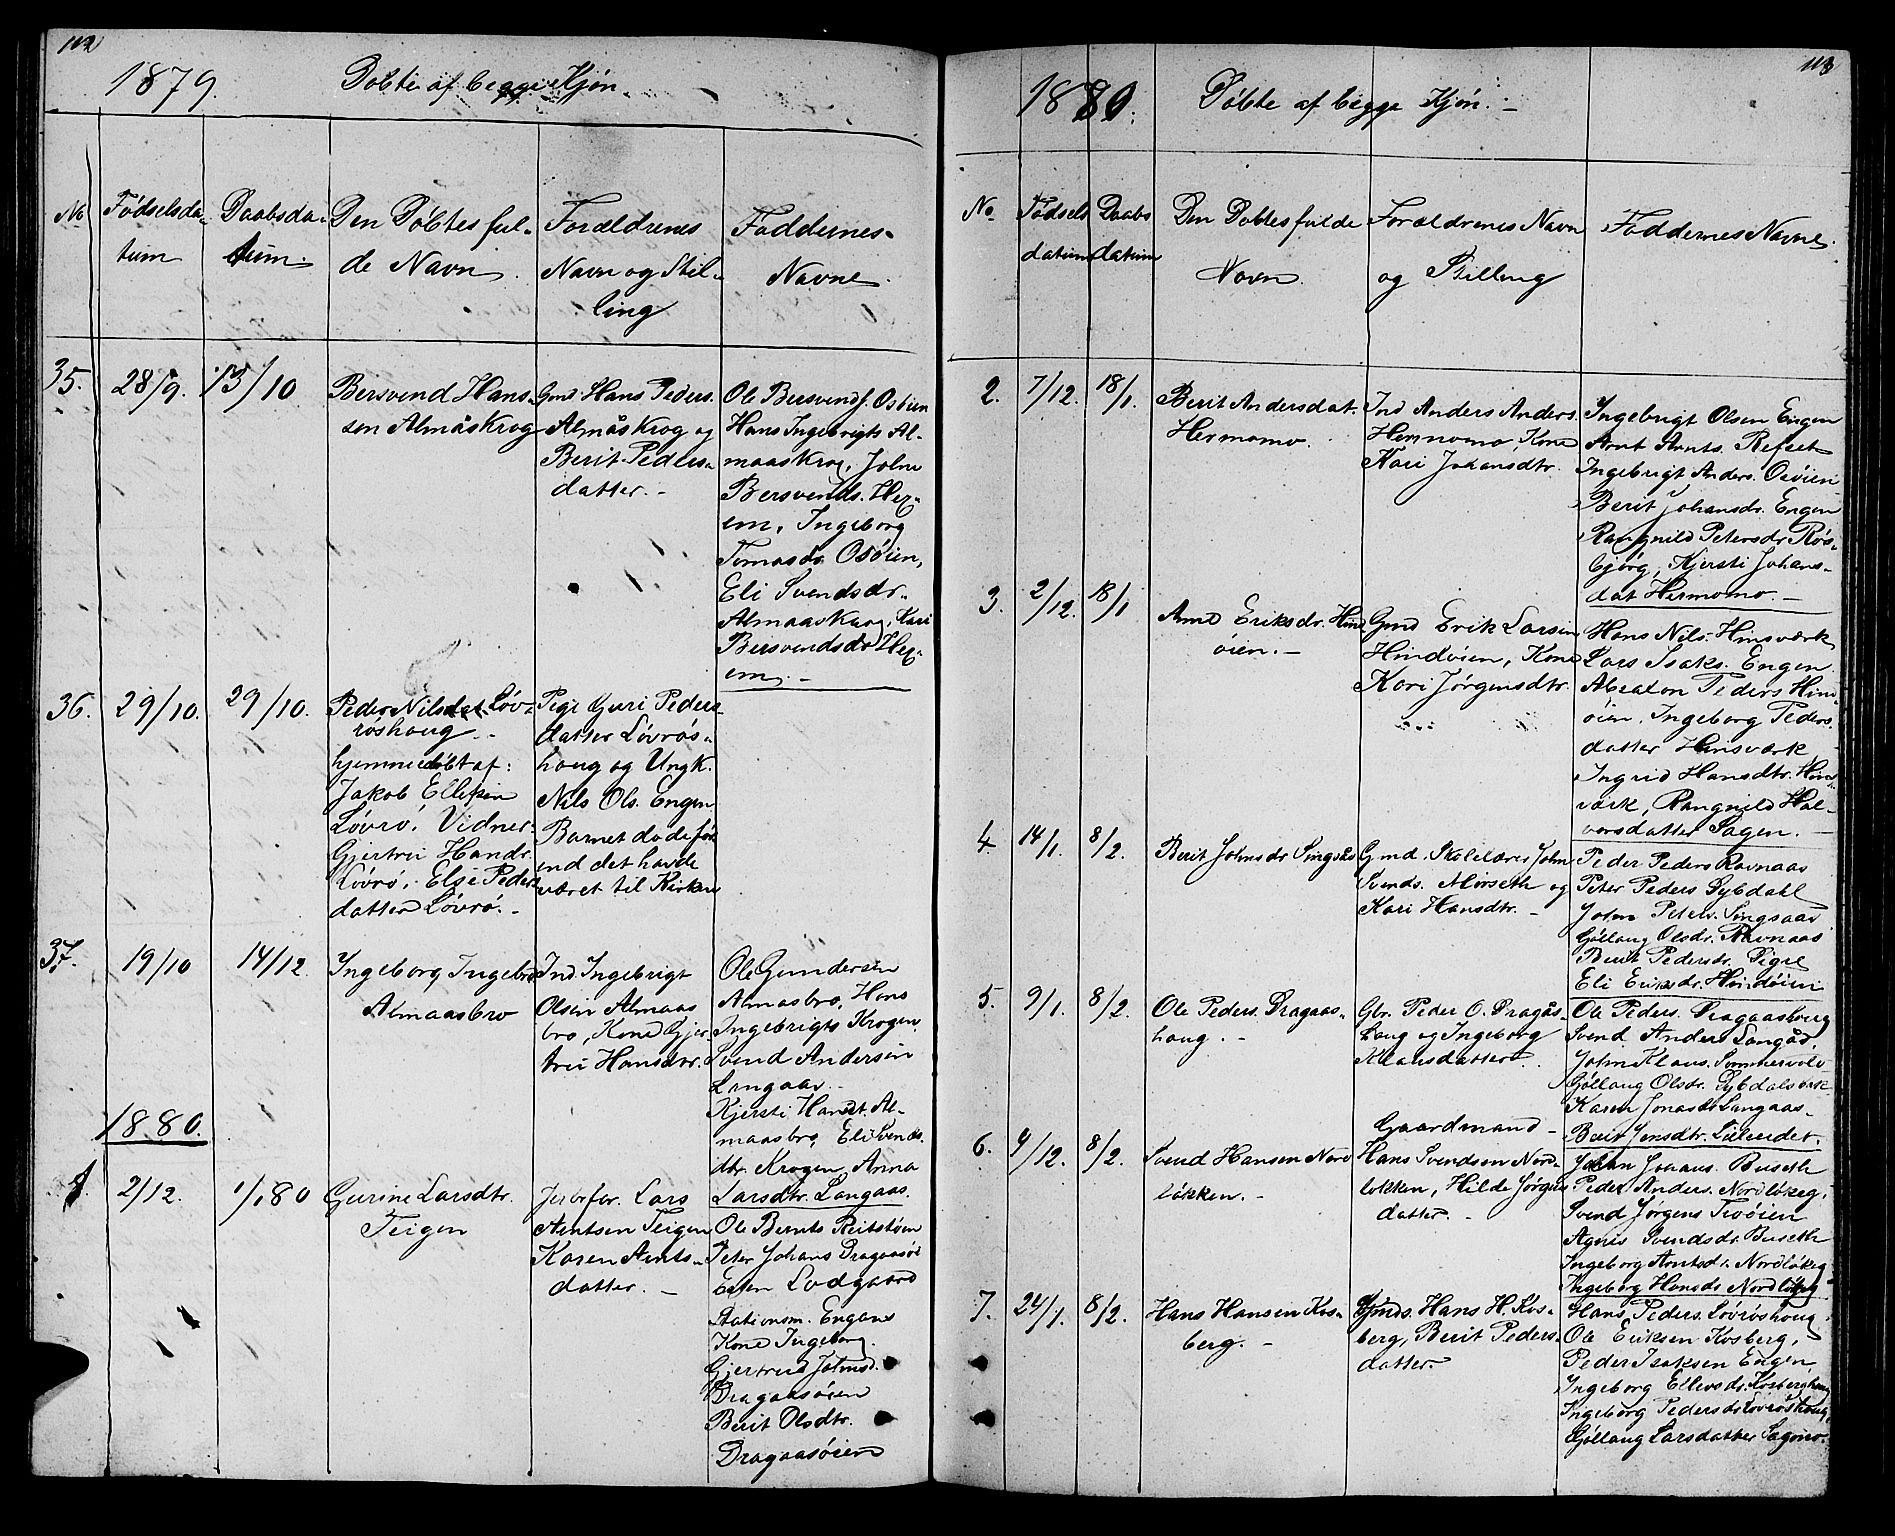 112
1879. Døbte af begge Kjøn.
No
Fødselsda-
tum
Daabsda-
tum.
Den Døbtes ful-
de Navn.
Forældrenes
Navn og Stil-
ling
Faddernes
Navne.
35. 28/9. 13/10
Bersvend Hans-
sen Almåskrog
Gmd. Hans Peders.
Almåskrog og
Berit Peders-
datter.
Ole Bersvends. Osøien
Hans Ingebrigts Al-
maaskrog, John
Bersvends. Hex-
em, Ingeborg
Tomasdr. Osøien,
Eli Svendsdr.
Almaaskrog, Kari
Bersvendsdr. Hex-
em.
36. 29/10. 29/10.
Peder Nilsen Løv-
røshoug
hjemmedøbt af:
Jakob Ellefsen
Løvrø. Vidner
Gjertru Hansdr.
Løvrø, Else Peders
datter Løvrø.
Pige Guri Peders-
datter Løvrøs-
houg og Ungk.
Nils Ols. Engen
Barnet døde før
end det havde
været til Kirken
37. 19/10 14/12.
Ingeborg Ingebr.
Almaasbro
Ind. Ingebrigt
Olsen Almaas
bro, Kone Gjer-
tru Hansdtr.
Ole Gundersen
Almasbro, Hans
Ingebrigts Krogen,
Svend Andersen
Langaas.
Kjersti Hansdt. Al-
maasbro, Eli Svends.
dtr. Krogen, Anna
Larsdtr. Langaas.
1880.
1. 2/12. 1/1 80
Gurine Larsdtr.
Teigen
Lars
Arntsen Teigen
Karen Arnts-
datter.
Ole Bernts Reitstøen
Peter Johans Dragaasøi
Esten Lodgaard
Stationsm. Engans
Kone Ingeborg.
Gjertrud Johnsd.
Dragaasøien
Berit Olsdtr.
Dragaasøien
113
1880. Døbte af begge Kjøn.
No.
Fødsels
datum
Daabs
datum
Den Døbtes fulde
Navn.
Forældrenes Navn
og Stilling
Faddernes Navne.
2. 7/12. 18/1.
Berit Andersdat.
Hermomo.
Ind Anders Anders.
Hermomo Kone
Kari Johansdtr.
Ingebrigt Olsen Engen
Arnt Arnts. Refset
Ingebrigt Anders. Osøien
Berit Johansdr. Engen
Rangnild Petersdr. Røs-
bjørg, Kjersti Johans-
dat Hermomo.
3. 2/12. 18/1
Anne Eriksdr. Hind
øien.
Gmd Erik Larsen
Hindøien, Kone
Kari Jørgensdtr.
Hans Nils. Hinsværk
Lars Isaks. Engen.
Absalon Peders Hin-
øien, Ingeborg Peders.
datter Hinsværk
Ingrid Hansdtr. Hins
værk, Rangnild Hal-
vorsdatter Sagen.
4. 14/1. 8/2.
Berit Johnsdr. Singsås
Gmd. Skolelærer John
Svends. Morseth og
Kari Hansdtr.
Peder Peders Ravnaas
Peter Peders Dybdahl
John Peters. Singsaas
Gøllaug Olsdr. Ravnaas
Berit Pedersdr. Pige
Eli Eriksdr. Hindøien
5. 9/1. 8/2.
Ole Peders. Dragaas-
houg.
Gbr. Peder O. Dragås-
houg og Ingeborg
Klausdatter.
Ole Peders. Dragaashoug
Svend Anders Langås.
John Klaus. Sommervold
Gøllaug Olsdr. Dybdalsvær
Karen Jonasdr. Langaas.
Berit Jensdtr. Lilleeidet.
6. 4/12. 8/2.
Svend Hansen Nord
løkken.
Gaardmand
Hans Svendsen Nord-
løkken, Hilde Jørgens
datter.
Johan Johans. Buseth
Peder Anders. Nordløkeg.
Svend Jørgens Troøien
Agnes Svendsdr. Buseth
Ingeborg Arntsdr. Nordløkeg
Ingeborg Hansdr Nordløkeg
7. 24/1. 8/2.
Hans Hansen Kos-
berg.
Gmds. Hans H. Kos-
berg, Berit Peders-
datter
Hans Peders. Løvrøshoug.
Ole Eriksen Kosberg,
Peder Isaksen Engen,
Ingeborg Ellevsdr. Kosberghoug
Ingeborg Pedersdr Løvrøshoug,
Gøllaug Larsdatter Sagmo.